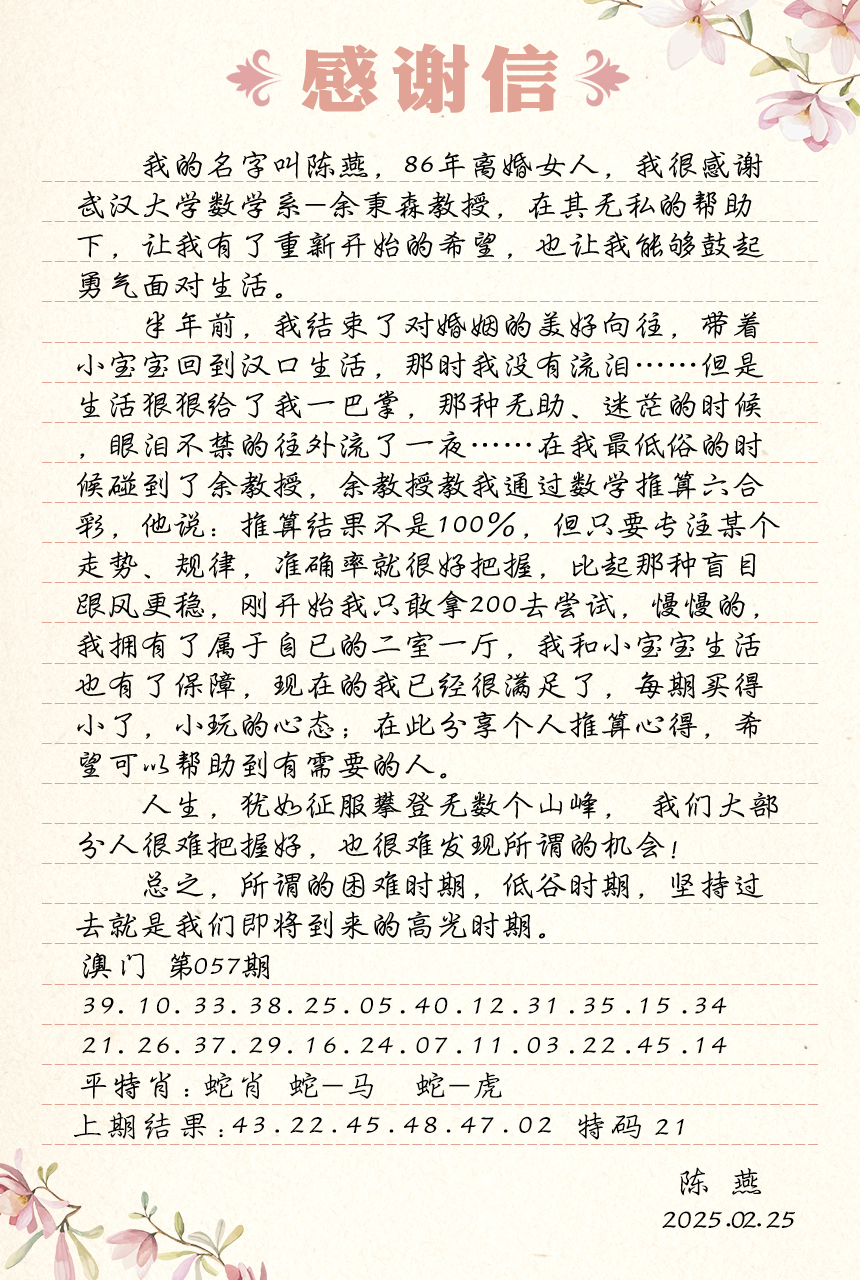 感谢信
我的名字叫陈燕，86年离婚女人，我很感谢
武汉大学数学系—余秉森教授，在其无私的帮助
下，让我有了重新开始的希望，也让我能够鼓起
勇气面对生活。
半年前，我结束了对婚姻的美好向往，带着
小宝宝回到汉口生活，那时我没有流泪……但是
生活狠狠给了我一巴掌，那种无助、迷茫的时候
，眼泪不禁的往外流了一夜……在我最低俗的时
候碰到了余教授，余教授教我通过数学推算六合
彩，他说：推算结果不是100%，但只要专注某个
走势、规律，准确率就很好把握，比起那种盲目
跟风更稳，刚开始我只敢拿200去尝试，慢慢的，
我拥有了属于自已的二室一厅，我和小宝宝生活
也有了保障，现在的我已经很满足了，每期买得
小了，小玩的心态；在此分享个人推算心得，希
望可以帮助到有需要的人。
人生，犹如征服攀登无数个山峰， 我们大部
分人很难把握好，也很难发现所谓的机会！
总之，所谓的困难时期，低谷时期，坚持过
去就是我们即将到来的高光时期。
澳门 第057期
39.10.33.38.25.05.40.12.31.35.15.34
21.26.37.29.16.24.07.11.03.22.45.14
平特肖：蛇肖 蛇—马 蛇—虎
上期结果：43.22.45.48.47.02 特码 21
陈 燕
2025.02.25